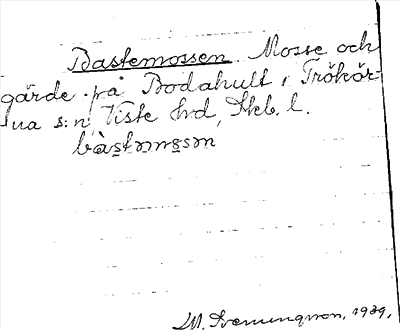 Bastemossen. Mosse och
gärde på Bodahult, Trökör-
na s:n, Viste hd, Skb. l.
bàstmmssn
M. Svenungson, 1939.